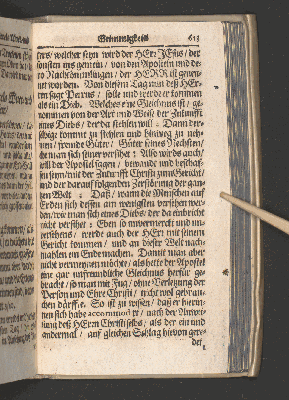 Grimmigkeit 613
fers/ welcher seyn wird der HErr JEsus / der
sonsten ins gemein / von den Aposteln und de-
ro Nachkömmlingen / der HERR ist genen-
net worden. Von diesem Tag nun deß HEr-
ren sagt Petrus / solle und werde er kommen
als ein Dieb. Welches eine Gleichnus ist / ge-
nommen von der Art und Weise der Zukunfft
eines Diebs / der da stehlen will: Dann der-
selbige kommt zu stehlen und hinweg zu neh-
men / fremde Güter / Güter seines Nechsten /
da man sich seiner versihet: Also wirds auch /
will der Apostel sagen / bewandt und beschaf-
fen seyn / mit der Zukunfft Christi zum Gericht /
und der darauf folgenden Zerstörung der gan-
zen Welt: Daß / wann die Menschen auf
Erden sich dessen am wenigsten versehen wer-
den / wie man sich eines Diebs / der da einbricht
nicht versihet: Eben so unvermerckt und un-
versehens / werde auch der HErr mit seinem
Gericht kommen / und an dieser Welt nach-
mahlen ein Ende machen. Damit man aber
nicht vermeynen möchte / als hette der Apostel
eine gar unfreundliche Gleichnus herfür ge-
bracht / so man mit Fug / ohne Verletzung der
Person und Ehre Christi / nicht wol gebrau-
chen dörffe. So ist zu wissen / daß er hierin-
nen sich habe accommodirt / nach der Anwei-
sung deß HErrn Christi selbs / als der ein und
andermal / auf gleichen Schlag hievon gere-
det